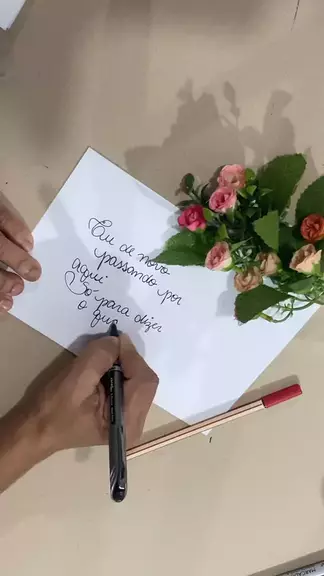 Eu de novo
passando por
aqui
Só para dizer
o qu